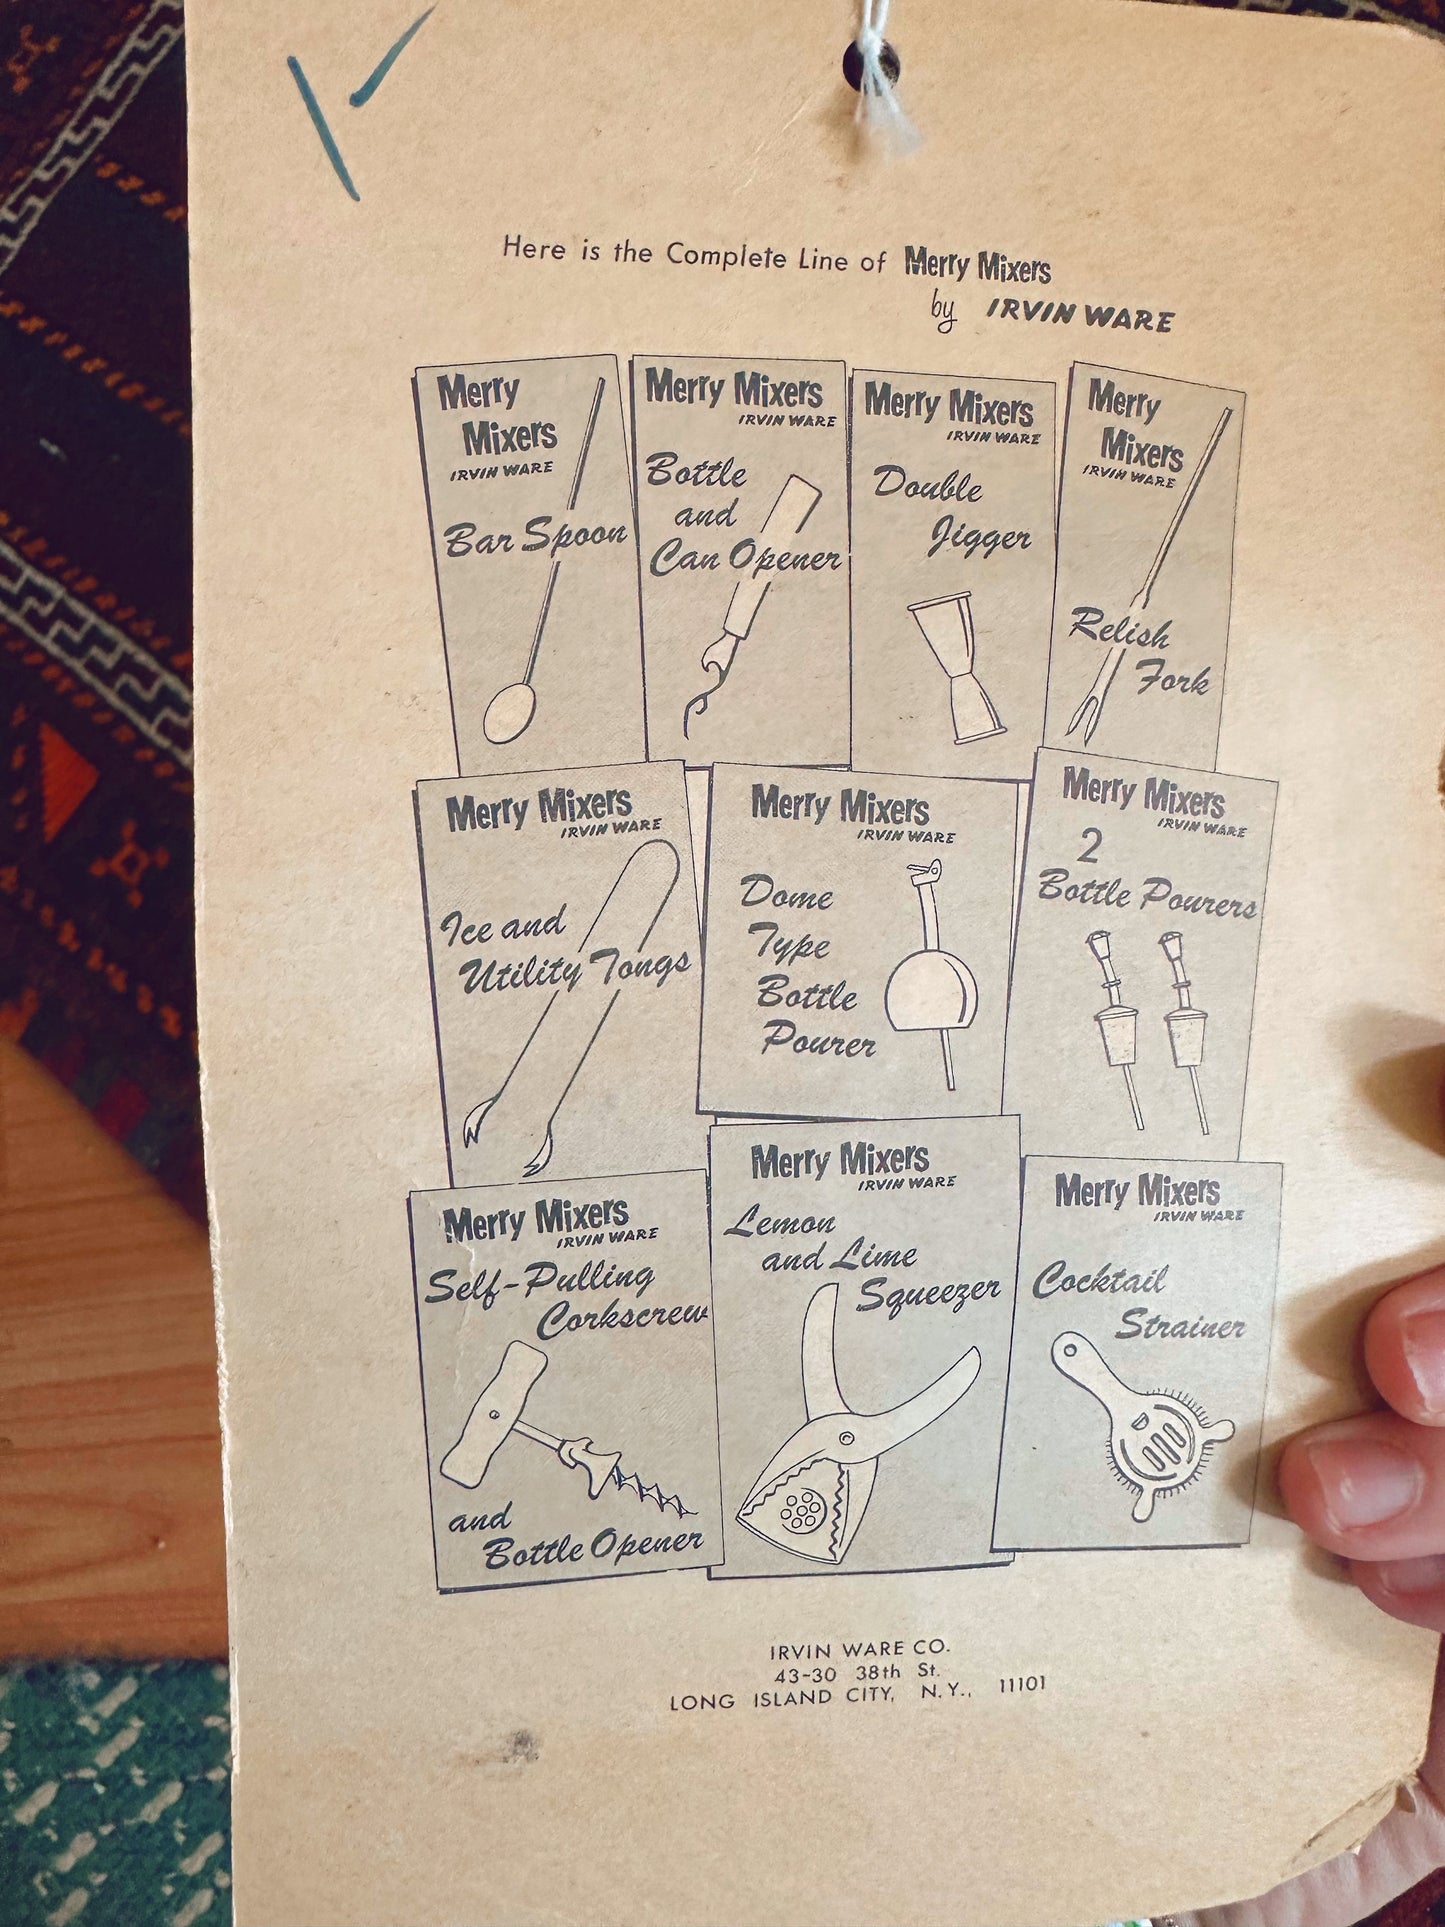 Here is the Complete Line of Merry Mixers
by IRVIN WARE
Merry
Mixers
IRVIN WARE
Bar Spoon
Merry Mixers
IRVIN WARE
Bottle
and
Can Opener
Merry Mixers
IRVIN WARE
Double
Jigger
Merry
Mixers
IRVIN WARE
Relish
Fork
Merry Mixers
IRVIN WARE
Ice and
Utility Tongs
Merry Mixers
IRVIN WARE
Dome
Type
Bottle
Pourer
Merry Mixers
IRVIN WARE
2
Bottle Pourers
Merry Mixers
IRVIN WARE
Self-Pulling
Corkscrew
and
Bottle Opener
Merry Mixers
IRVIN WARE
Lemon
and Lime
Squeezer
Merry Mixers
IRVIN WARE
Cocktail
Strainer
IRVIN WARE CO.
43-30 38th St.
LONG ISLAND CITY, N.Y., 11101